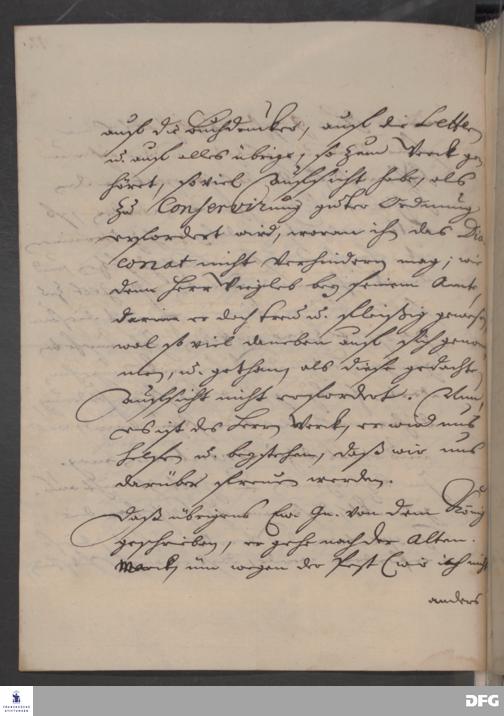 auf die Buchdrucker, auf die Letter
u. auf alles übrige, so zum Werck ge
höret, so viel Aufsicht habe, als
zu Conservirung guter Ordnung
erfordert wird, woran ihn das Dia
conat nicht verhindern mag; wie
denn Herr bey seinem Amte,
darin er doch treu u. fleißig gewesen,
wol so viel daneben auf sich genom
men, u. gethan, als diese gedachte
Aufsicht nicht erfordert. Nun,
es ist des Herrn Werck, er wird uns
helfen u. beystehen, daß wir uns
darüber freuen werden.
Daß übrigens Ew. Gn. von dem König
geschrieben, er gehe nach der Alten
Marck, um wegen der Pest (wie ich nicht
anders
DFG